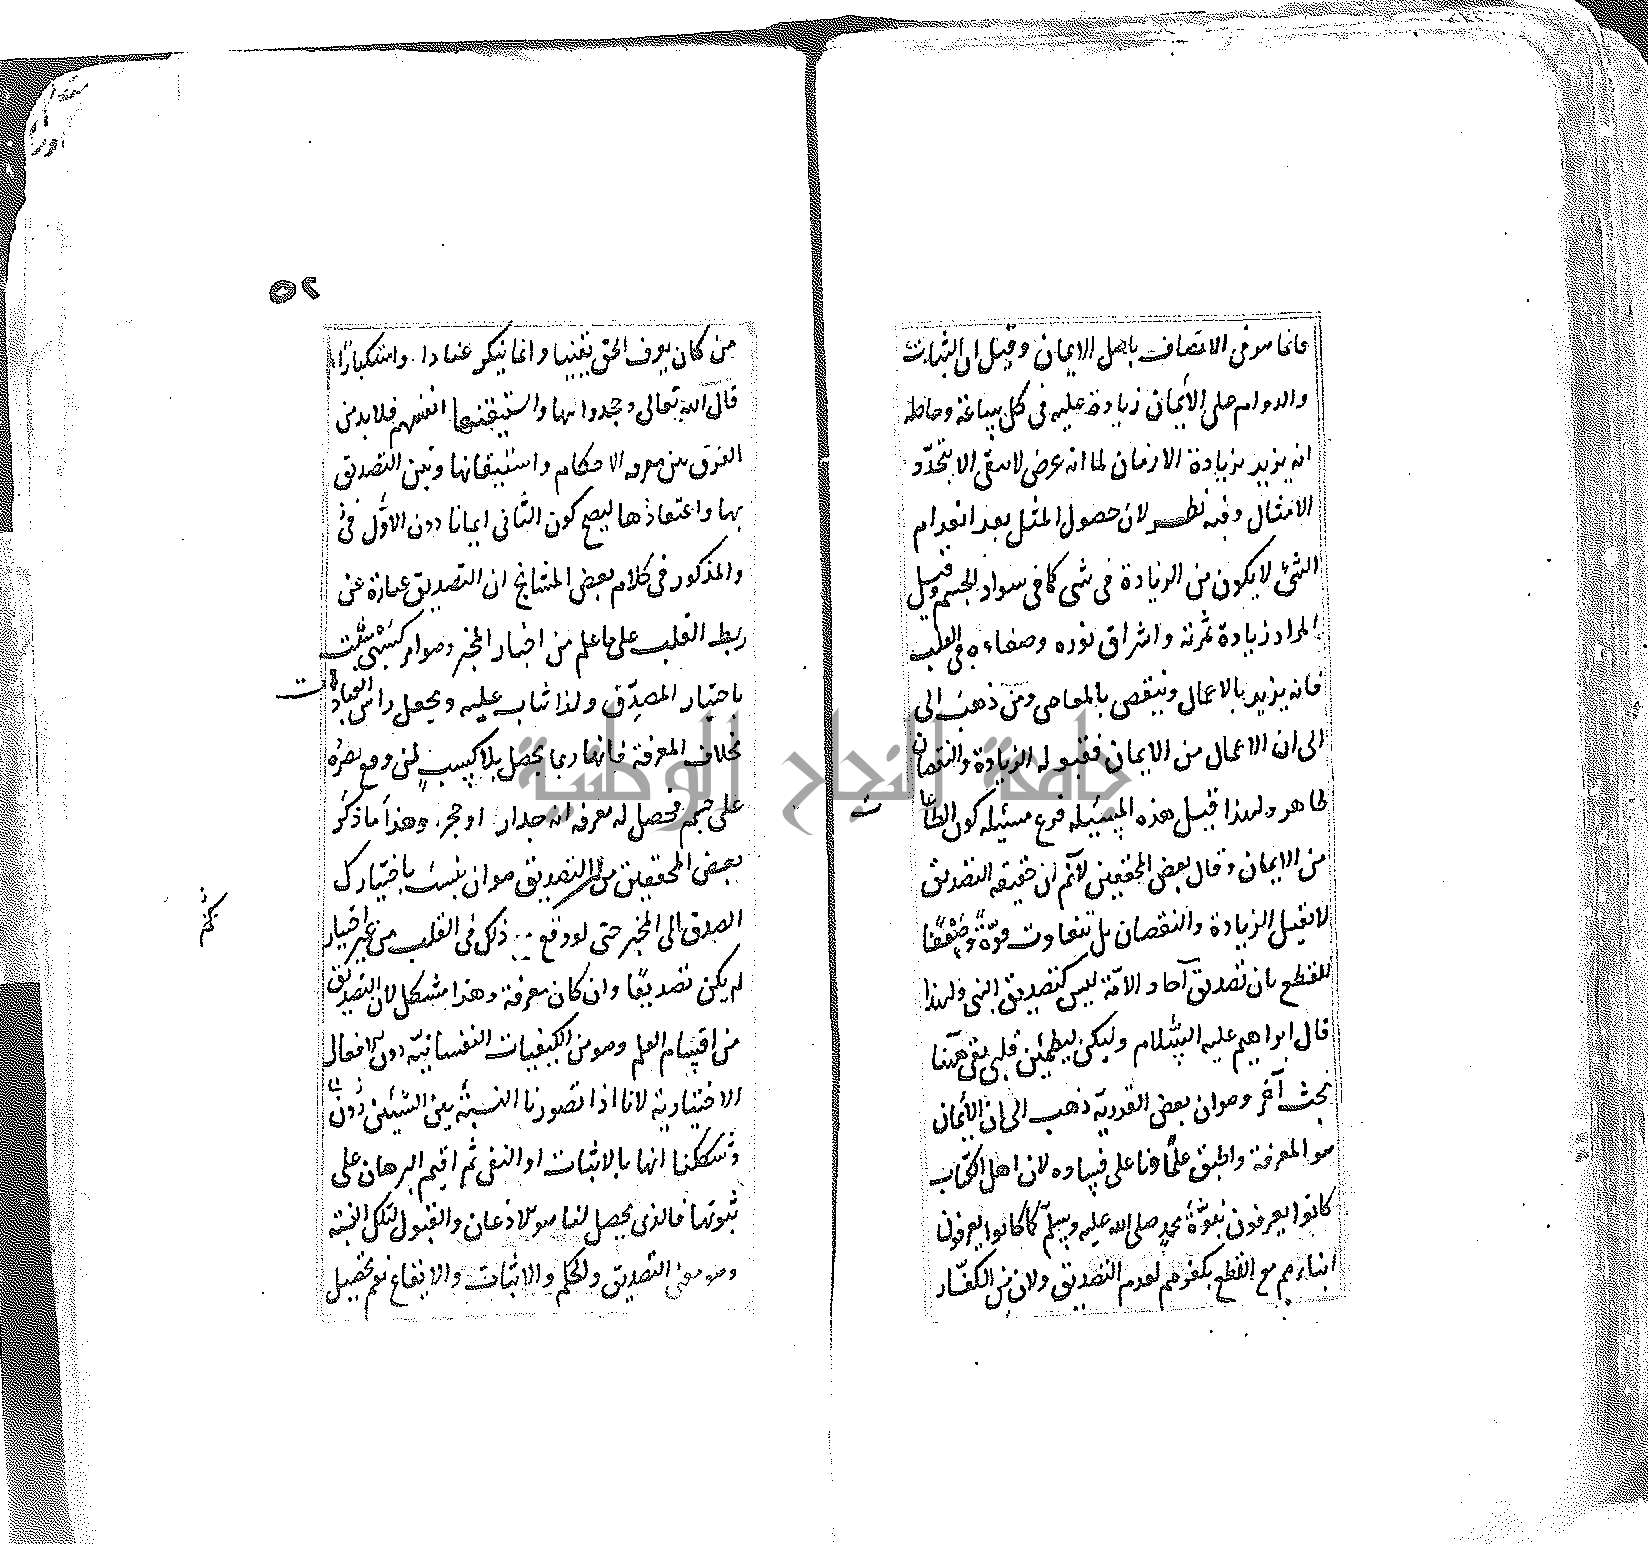 فانما هو في الاتصاف باهل الايمان وقيل ان الثبات
والدوام على الأيمان زيادة عليه في كل ساعة وحاصله
انه يزيد بزيادة الازمان لما انه عرض لا يبقى الا بتجدّد
الامثال وفيه نظر لان حصول المثل بعد انعدام
الشئ لا يكون من الزيادة في شى كما في سواد الجسم وقيل
المراد زيادة ثمرته واشراق نوره وصفاءه في القلب
فانه يزيد بالاعمال وينقص بالمعاصى ومن ذهب الى
الى ان الاعمال من الايمان فقبوله الزيادة والنقصان
ظاهر ولهذا قيل هذه المسئلة فرع مسئلة كون الطاعات
من الايمان وقال بعض المحققين لانم ان حقيقة التصديق
لا تقبل الزيادة والنقصان بل تتفاوت قوّةً وضعفًا
للقطع بان تصديق آحاد الامّة ليس كتصديق النبى ولهذا
قال ابراهيم عليه السلام وليكن ليطمئن قلبى بقى ههنا
بحث آخر وهو ان بعض القدريّة ذهب الى ان الأيمان
هو المعرفة واطبق علماؤنا على فساده لان اهل الكتاب
كانوا يعرفون نبوّة محمد صلى الله عليه وسلم كما كانوا يعرفون
ابناءهم مع القطع بكفرهم لعدم التصديق ولان من الكفّار
٥٢
من كان يعرف الحق يقينيا وانما ينكر عنادا واستكبارًا
قال الله تعالى وجحدوا بها واستيقنتها انفسهم فلا بد من
الفرق بين معرفه الاحكام واستيقانها وبين التصديق
بها واعتقادها ليصح كون الثانى ايمانا دون الاوّل
والمذكور في كلام بعض المشايخ ان التصديق عبارة عن
ربط القلب على ما علم من اخبار المخبر وهو امر كسبى يثبت
باختيار المصدِّق ولذا يثاب عليه ويجعل راس العبادات
بخلاف المعرفة فانها ربما يحصل بلا كسب لمن وقع بصره
على جسم فحصل له معرفة انه جدار او حجر وهذا ما ذكر
بعض المحققين من ان التصديق هو ان ينسب باختيارك
الصدق الى المخبر حتى لو وقع ذلك في القلب من غير اختيار
لم يكن تصديقًا وان كان معرفة وهذا مشكل لان التصديق
من اقسام العلم وهو من الكيفيات النفسانيّه دون الافعال
الاختيارية لانا اذا تصورنا النسبة بين الشيئين
وشككنا انها بالاثبات او النفى ثم اقيم البرهان على
ثبوتها فالذى يحصل لنا هو الاذعان والقبول لتلك النسبة
وهو معنى التصديق والحكم والاثبات والايقاع نعم تحصيل
جامعة النجاح الوطنية